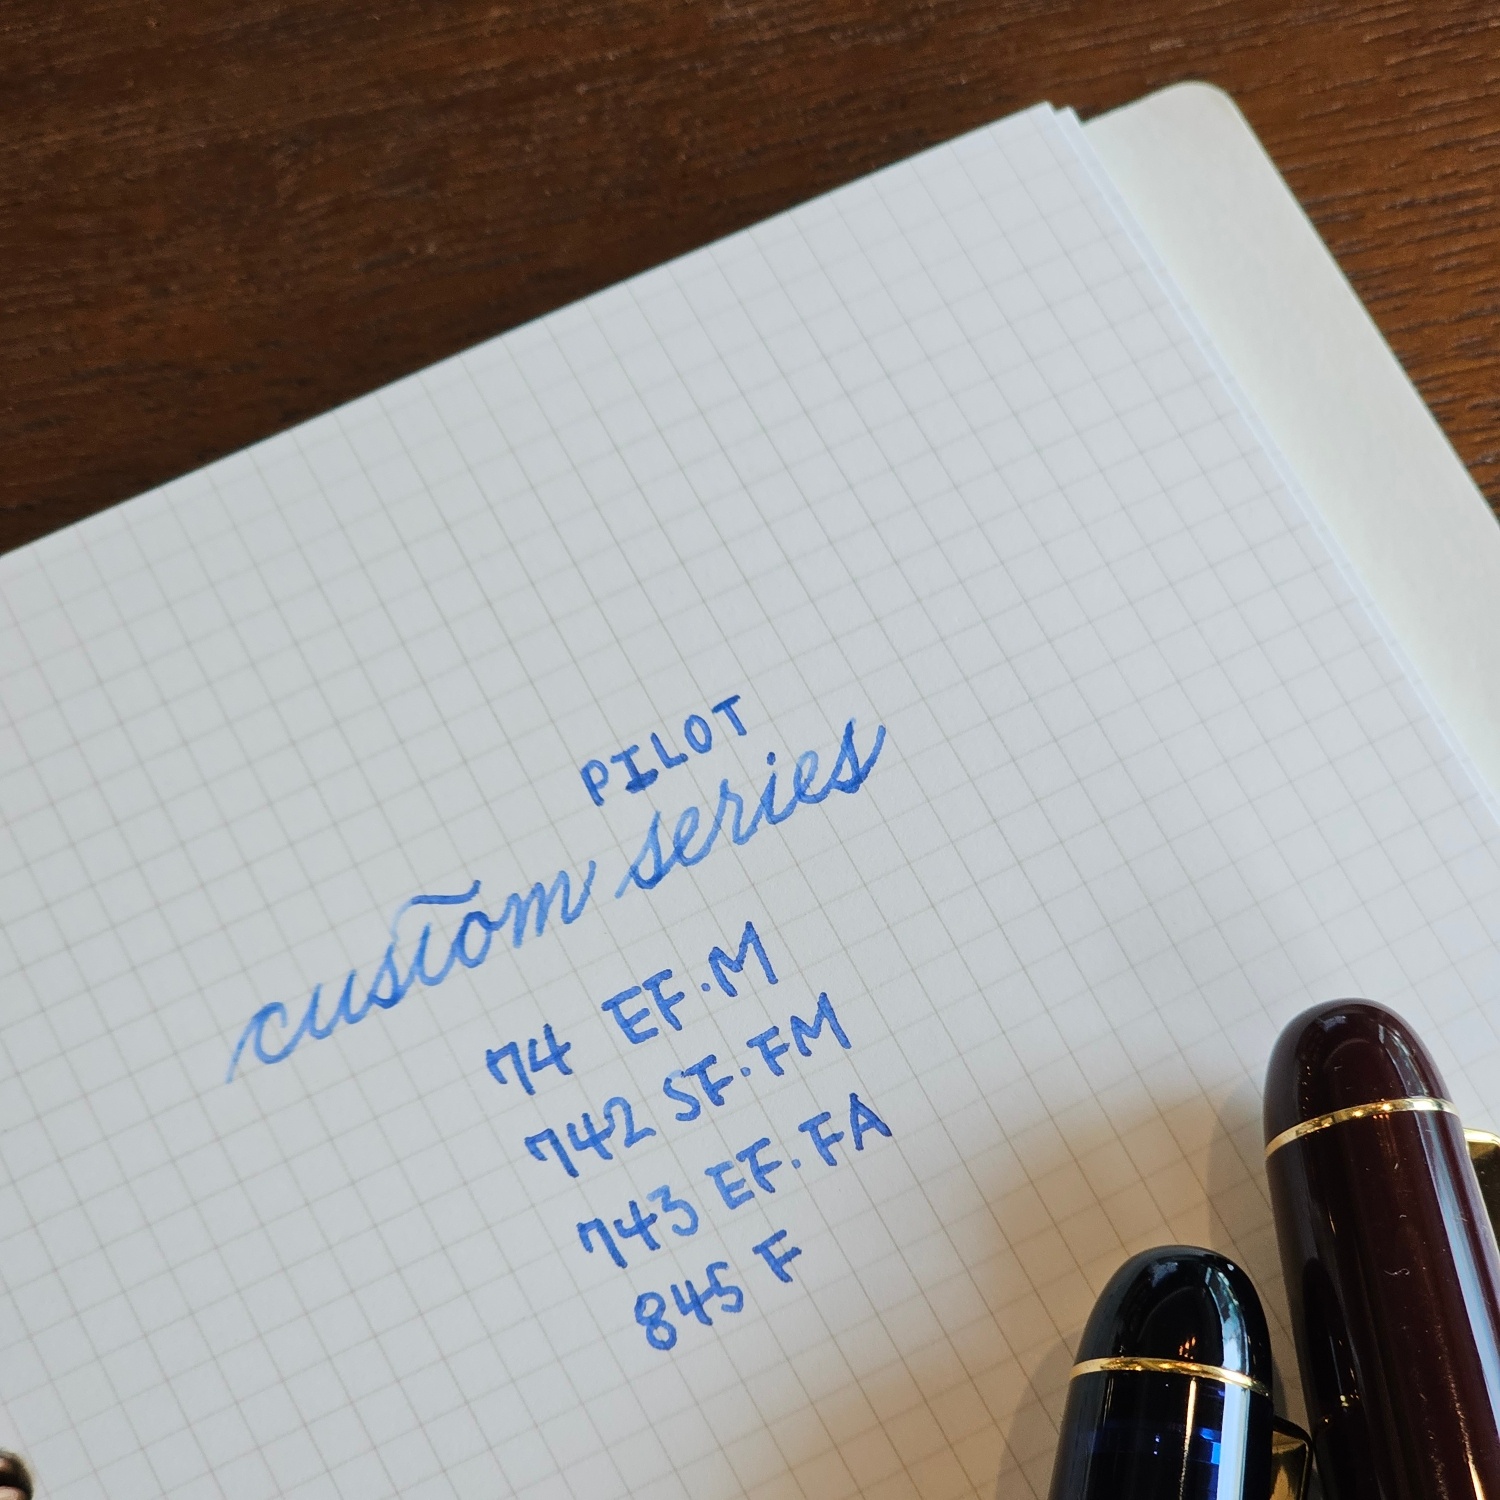 PILOT
custom series
74 EF.M
742 SF.FM
743 EF.FA
845 F